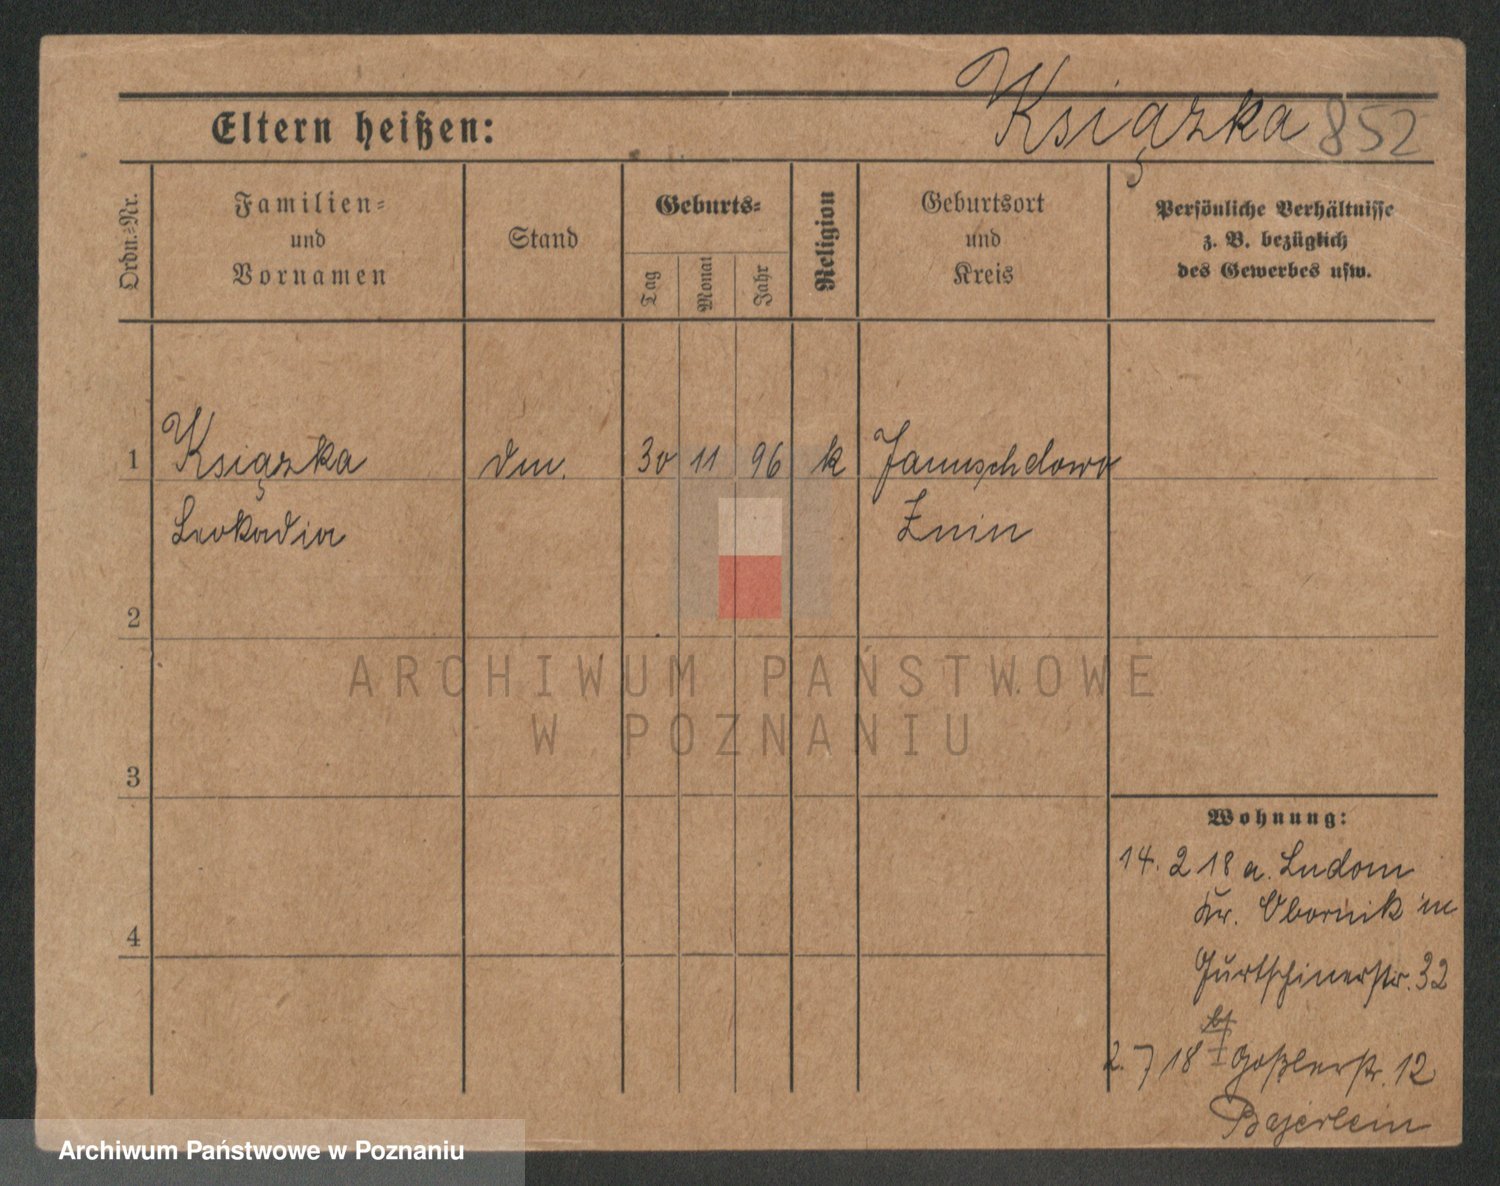 Książka 852
Eltern heißen:
Ordn.-Nr.
Familien-
und
Vornamen
Stand
Geburts-
Tag
Monat
Jahr
Religion
Geburtsort
und
Kreis
Persönliche Verhältnisse
z. B. bezüglich
des Gewerbes usw.
1 Książka dm. 30 11 96 k
Leokadia Znin
2
3
4
Wohnung:
14. 2 18 a. Ludom
Kr. Obornik in
Gurtschinerstr. 32
2. 7 18 Goßlerstr. 12
Bajerlein
ARCHIWUM PAŃSTWOWE
W POZNANIU
Archiwum Państwowe w Poznaniu